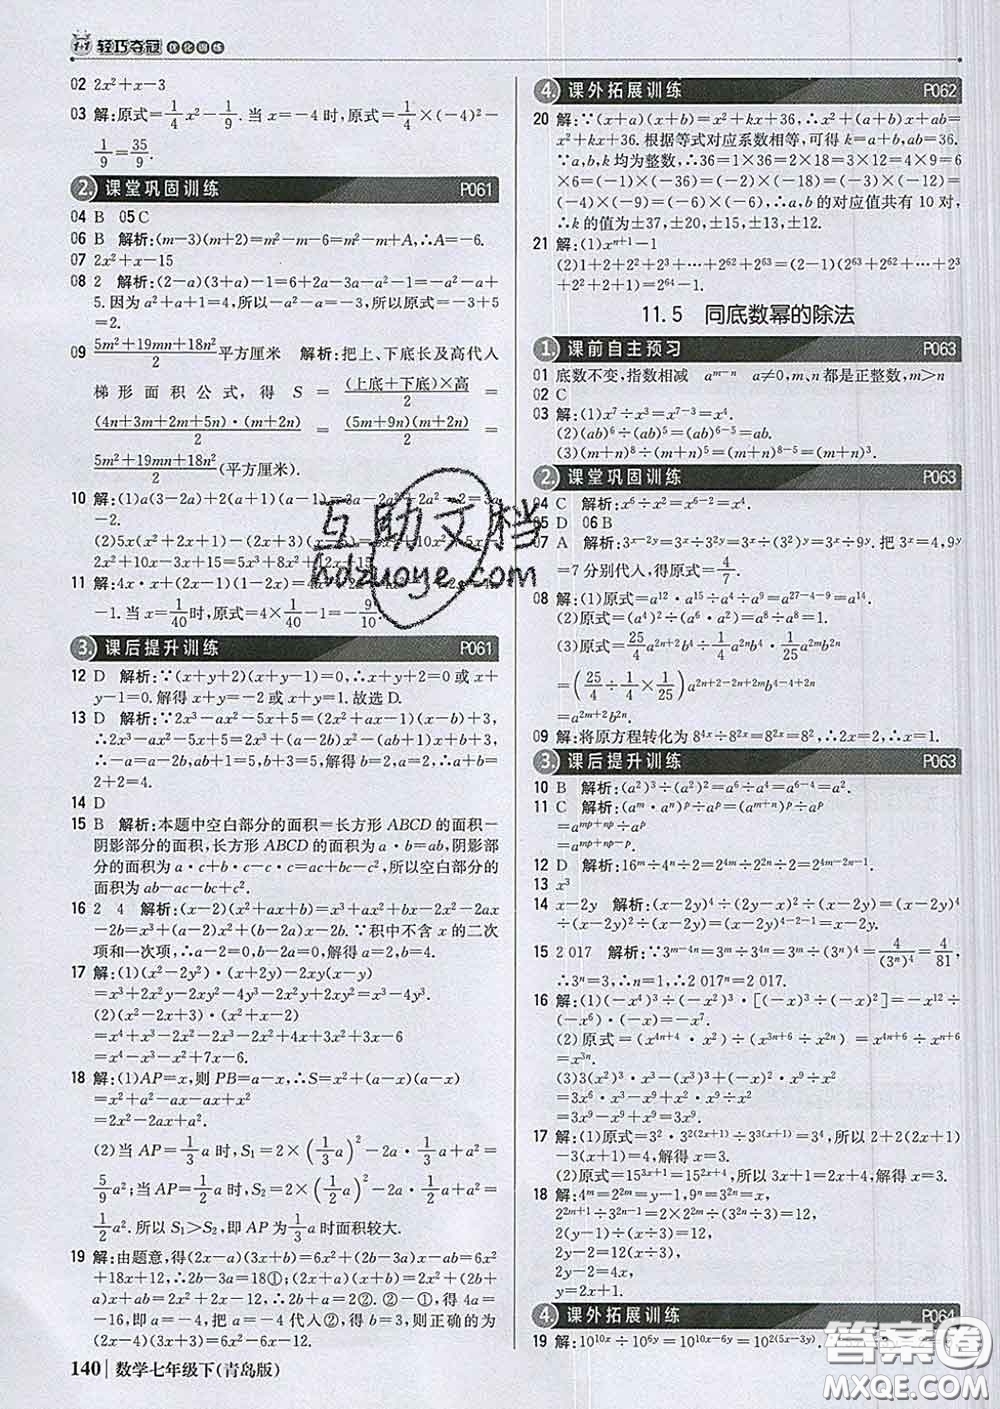 1+1 轻巧夺冠 优化训练
02 2x²+x-3
03 解:原式=1/4x²-1/9. 当 x=-4 时,原式=1/4×(-4)²-
1/9=35/9.
2. 课堂巩固训练 P061
04 B 05 C
06 B 解析:(m-3)(m+2)=m²-m-6=m²-m+A,∴A=-6.
07 2x²+x-15
08 2 解析:(2-a)(3+a)-1=6+2a-3a-a²-1=-a²-a+
5. 因为 a²+a+1=4,所以-a²-a=-3,所以原式=-3+5
=2.
09 (5m²+19mn+18n²)/2 平方厘米 解析:把上、下底长及高代入
梯形面积公式,得 S=(上底+下底)×高/2=
(4n+3m+2m+5n)·(3m+2n)/2=(5m+9n)(3m+2n)/2=
(5m²+19mn+18n²)/2(平方厘米).
10 解:(1)a(3-2a)+2(a+1)(a-1)=3a-2a²+2a²-2=3a
-2.
11 解:4x·x+(2x-1)(1-2x)=
-1. 当 x=1/40时,原式=4×1/40-1=-9/10.
3. 课后提升训练 P061
12 D 解析:∵(x+y+2)(x+y-1)=0,∴x+y+2=0 或 x+
y-1=0. 解得 x+y=-2 或 x+y=1. 故选 D.
13 D 解析:∵2x³-ax²-5x+5=(2x²+ax-1)(x-b)+3,
∴2x³-ax²-5x+5=2x³+(a-2b)x²-(ab+1)x+b+3,
∴-a=a-2b,ab+1=5,b+3=5. 解得 b=2,a=2,∴a+b=
4.
14 D
15 B 解析:本题中空白部分的面积=长方形 ABCD 的面积-
阴影部分的面积,长方形 ABCD 的面积为 a·b=ab,阴影部
分的面积为 a·c+b·c-c·c=ac+bc-c²,所以空白部分的
面积为 ab-ac-bc+c².
16 2 4 解析:(x-2)(x²+ax+b)=x³+ax²+bx-2x²-2ax
-2b=x³+(a-2)x²+(b-2a)x-2b. ∵积中不含 x 的二次
项和一次项,∴a-2=0,b-2a=0. 解得 a=2,b=4.
17 解:(1)(x²-2y²)·(x+2y)-2xy(x-y)
=x³+2x²y-2xy²-4y³-2x²y+2xy²=x³-4y³.
(2)(x²-2x+3)·(x²+x-2)
=x⁴+x³-2x²-2x³-2x²+4x+3x²+3x-6
=x⁴-x³-x²+7x-6.
18 解:(1)AP=x,则 PB=a-x,∴S=x²+(a-x)(a-x)
=x²+a²-ax-ax+x²
=2x²-2ax+a².
(2)当 AP=1/3a 时,S₁=2×(1/3a)²-2a·1/3a+a²=
5/9a²;当 AP=1/2a 时,S₂=2×(1/2a)²-2a·1/2a+a²=
1/2a². 所以 S₁>S₂,即 AP 为1/3a 时面积较大.
19 解:由题意,得(2x-a)(3x+b)=6x²+(2b-3a)x-ab=6x²
+18x+12,∴2b-3a=18①;(2x+a)(x+b)=2x²+(2b+
a)x+ab=2x²+2x-12,∴2b+a=2②. ②-①,得 4a=
-16,即 a=-4,把 a=-4 代入②,得 b=3,则正确的为
(2x-4)(3x+3)=6x²-6x-12.
140 数学七年级下(青岛版)
4. 课外拓展训练 P062
20 解:∵(x+a)(x+b)=x²+kx+36,∴x²+(a+b)x+ab=
x²+kx+36. 根据等式对应系数相等,可得 k=a+b,ab=36.
∵a,b 均为整数,∴36=1×36=2×18=3×12=4×9=6
×6=(-1)×(-36)=(-2)×(-18)=(-3)×(-12)=
(-4)×(-9)=(-6)×(-6),∴a,b 的对应值共有 10 对,
∴k 的值为±37,±20,±15,±13,±12.
21 解:(1)xⁿ⁺¹-1
(2)1+2+2²+2³+…+2⁶²+2⁶³=(2-1)(2⁶³+2⁶²+…+2³
+2²+2+1)=2⁶⁴-1.
11.5 同底数幂的除法
1. 课前自主预习 P063
01 底数不变,指数相减 aᵐ⁻ⁿ a≠0,m、n 都是正整数,m>n
02 C
03 解:(1)x⁷÷x³=x⁷⁻³=x⁴.
(2)(ab)⁶÷(ab)⁵=(ab)⁶⁻⁵=ab.
(3)(m+n)⁸÷(m+n)⁵=(m+n)⁸⁻⁵=(m+n)³.
2. 课堂巩固训练 P063
04 C 解析:x⁶÷x²=x⁶⁻²=x⁴.
05 D 06 B
07 A 解析:3ˣ⁻²ʸ=3ˣ÷3²ʸ=3ˣ÷(3²)ʸ=3ˣ÷9ʸ. 把 3ˣ=4,9ʸ
=7 分别代入,得原式=4/7.
08 解:(1)原式=a¹²·a¹⁵÷a⁴÷a⁹=a¹²⁺¹⁵⁻⁴⁻⁹=a¹⁴.
(2)原式=(a⁴)²÷(a⁶·a²)=a⁸÷a⁸=1.
(3)原式=25/4a²ⁿb⁴÷1/4a²b⁴ⁿ·1/25a²ⁿb²ⁿ
=(25/4÷1/4×1/25)a²ⁿ⁺²⁻²ⁿ
=a²b²ⁿ.
09 解:将原方程转化为 8⁴ˣ÷8²ˣ=8²ˣ=8²,∴2x=2,∴x=1.
3. 课后提升训练 P063
10 B 解析:(a²)³÷(a²)²=a⁶÷a⁴=a².
11 C 解析:(aᵐ·aⁿ)ᵖ÷aᵖ=(aᵐ⁺ⁿ)ᵖ÷aᵖ
=aᵐᵖ⁺ⁿᵖ÷aᵖ
=aᵐᵖ⁺ⁿᵖ⁻ᵖ.
12 D 解析:16ᵐ÷4ⁿ÷2=2⁴ᵐ÷2²ⁿ÷2=2⁴ᵐ⁻²ⁿ⁻¹.
13 x³
14 x-2y 解析:(x-2y)⁴÷(2y-x)²÷(x-2y)=(x-2y)⁴
÷(x-2y)²÷(x-2y)=(x-2y)⁴⁻²⁻¹=x-2y.
15 2 017 解析:∵3ᵐ⁻⁴ⁿ=3ᵐ÷3⁴ⁿ=3ᵐ÷(3ⁿ)⁴=4/(3ⁿ)⁴=4/81,
∴3ⁿ=3,∴n=1,∴2 017ⁿ=2 017.
16 解:(1)(-x⁴)³÷(-x²)³·[(-x)³÷(-x)²]=-x¹²÷
(-x⁶)·(-x)=-x⁷.
(2)原式=(x⁴ⁿ⁺⁴·x²)÷(x·xⁿ⁺⁵)=x⁴ⁿ⁺⁶÷xⁿ⁺⁶
=x³ⁿ.
(3)3(x²)³·x³-(x³)³+(-x)²·x⁹÷x²
=3x⁶·x³-x⁹+x²·x⁹÷x²
=3x⁹-x⁹+x⁹=3x⁹.
17 解:(1)原式=3²·3²⁽ˣ⁺¹⁾÷3³⁽ˣ⁺¹⁾=3⁴,所以 2+2(2x+1)
-3(x+1)=4,解得 x=3.
(2)原式=15³ˣ⁺¹=15ˣ⁺⁴,所以 3x+1=2x+4,解得 x=3.
18 解:4ᵐ=2²ᵐ=y-1,9ⁿ=3²ⁿ=x,
2²ᵐ⁺¹÷3²ⁿ⁻¹=2×2²ᵐ÷(3²ⁿ÷3)=12,
2(y-1)÷(x÷3)=12,
2y-2=12(x÷3),
2y-2=4x,
y=2x+1.
4. 课外拓展训练 P064
19 解:10¹⁰ˣ÷10⁶ʸ=10¹⁰ˣ⁻⁶ʸ=10²⁽⁵ˣ⁻³ʸ⁾
互助文档
hdzuoye.com
答案圈
MXQE.COM